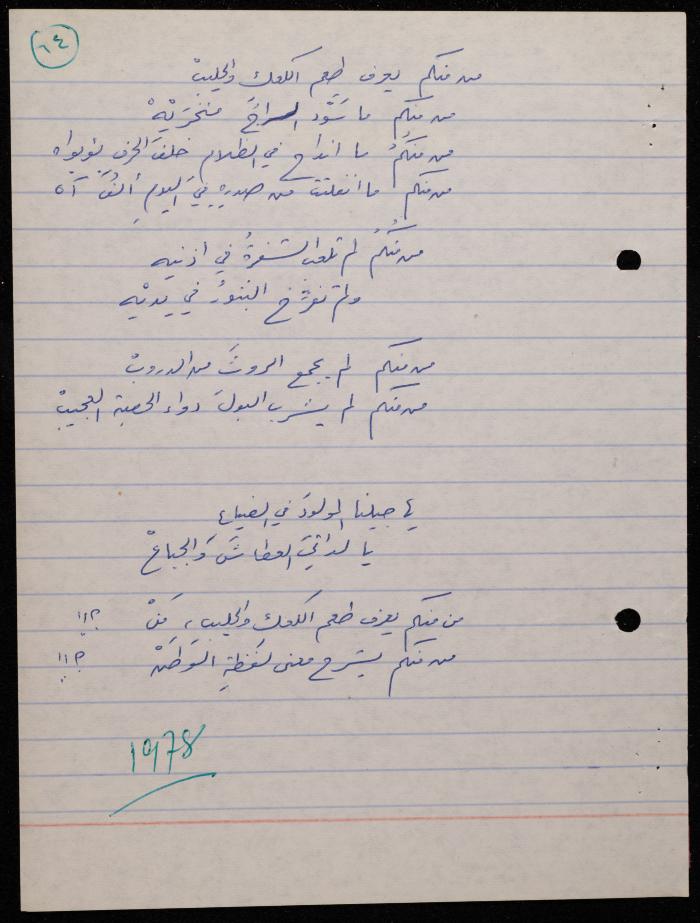 ٦٤
من منكم يعرف طعم الكعك والحليبْ
من منكم ما سَوَّد السراجُ منخرَيْهْ
من منكُمُ ما انداح في الظلام خلفَ الخرفِ
من منكم ما انفلتت من صدرِهِ في اليومِ ألفُ آه
من مُنكُمُ لم تلعب الشفرةُ في اذنيه
ولم تفرِّخ البثورُ في يديْه
من منكم لم يجمع الروثَ من الدروبْ
من منكم لم يشرب البولَ دواء الحصبة العجيبْ
يا جيلنا المولودَ في الضياع
يا لداتيَ العطاشَ وَالجياعْ
من منكم يعرف طعم الكعك والحليب، مَنْ ؟!!
من منكم يشرح معنى لفظةِ الوَطَنْ ؟!!
1978